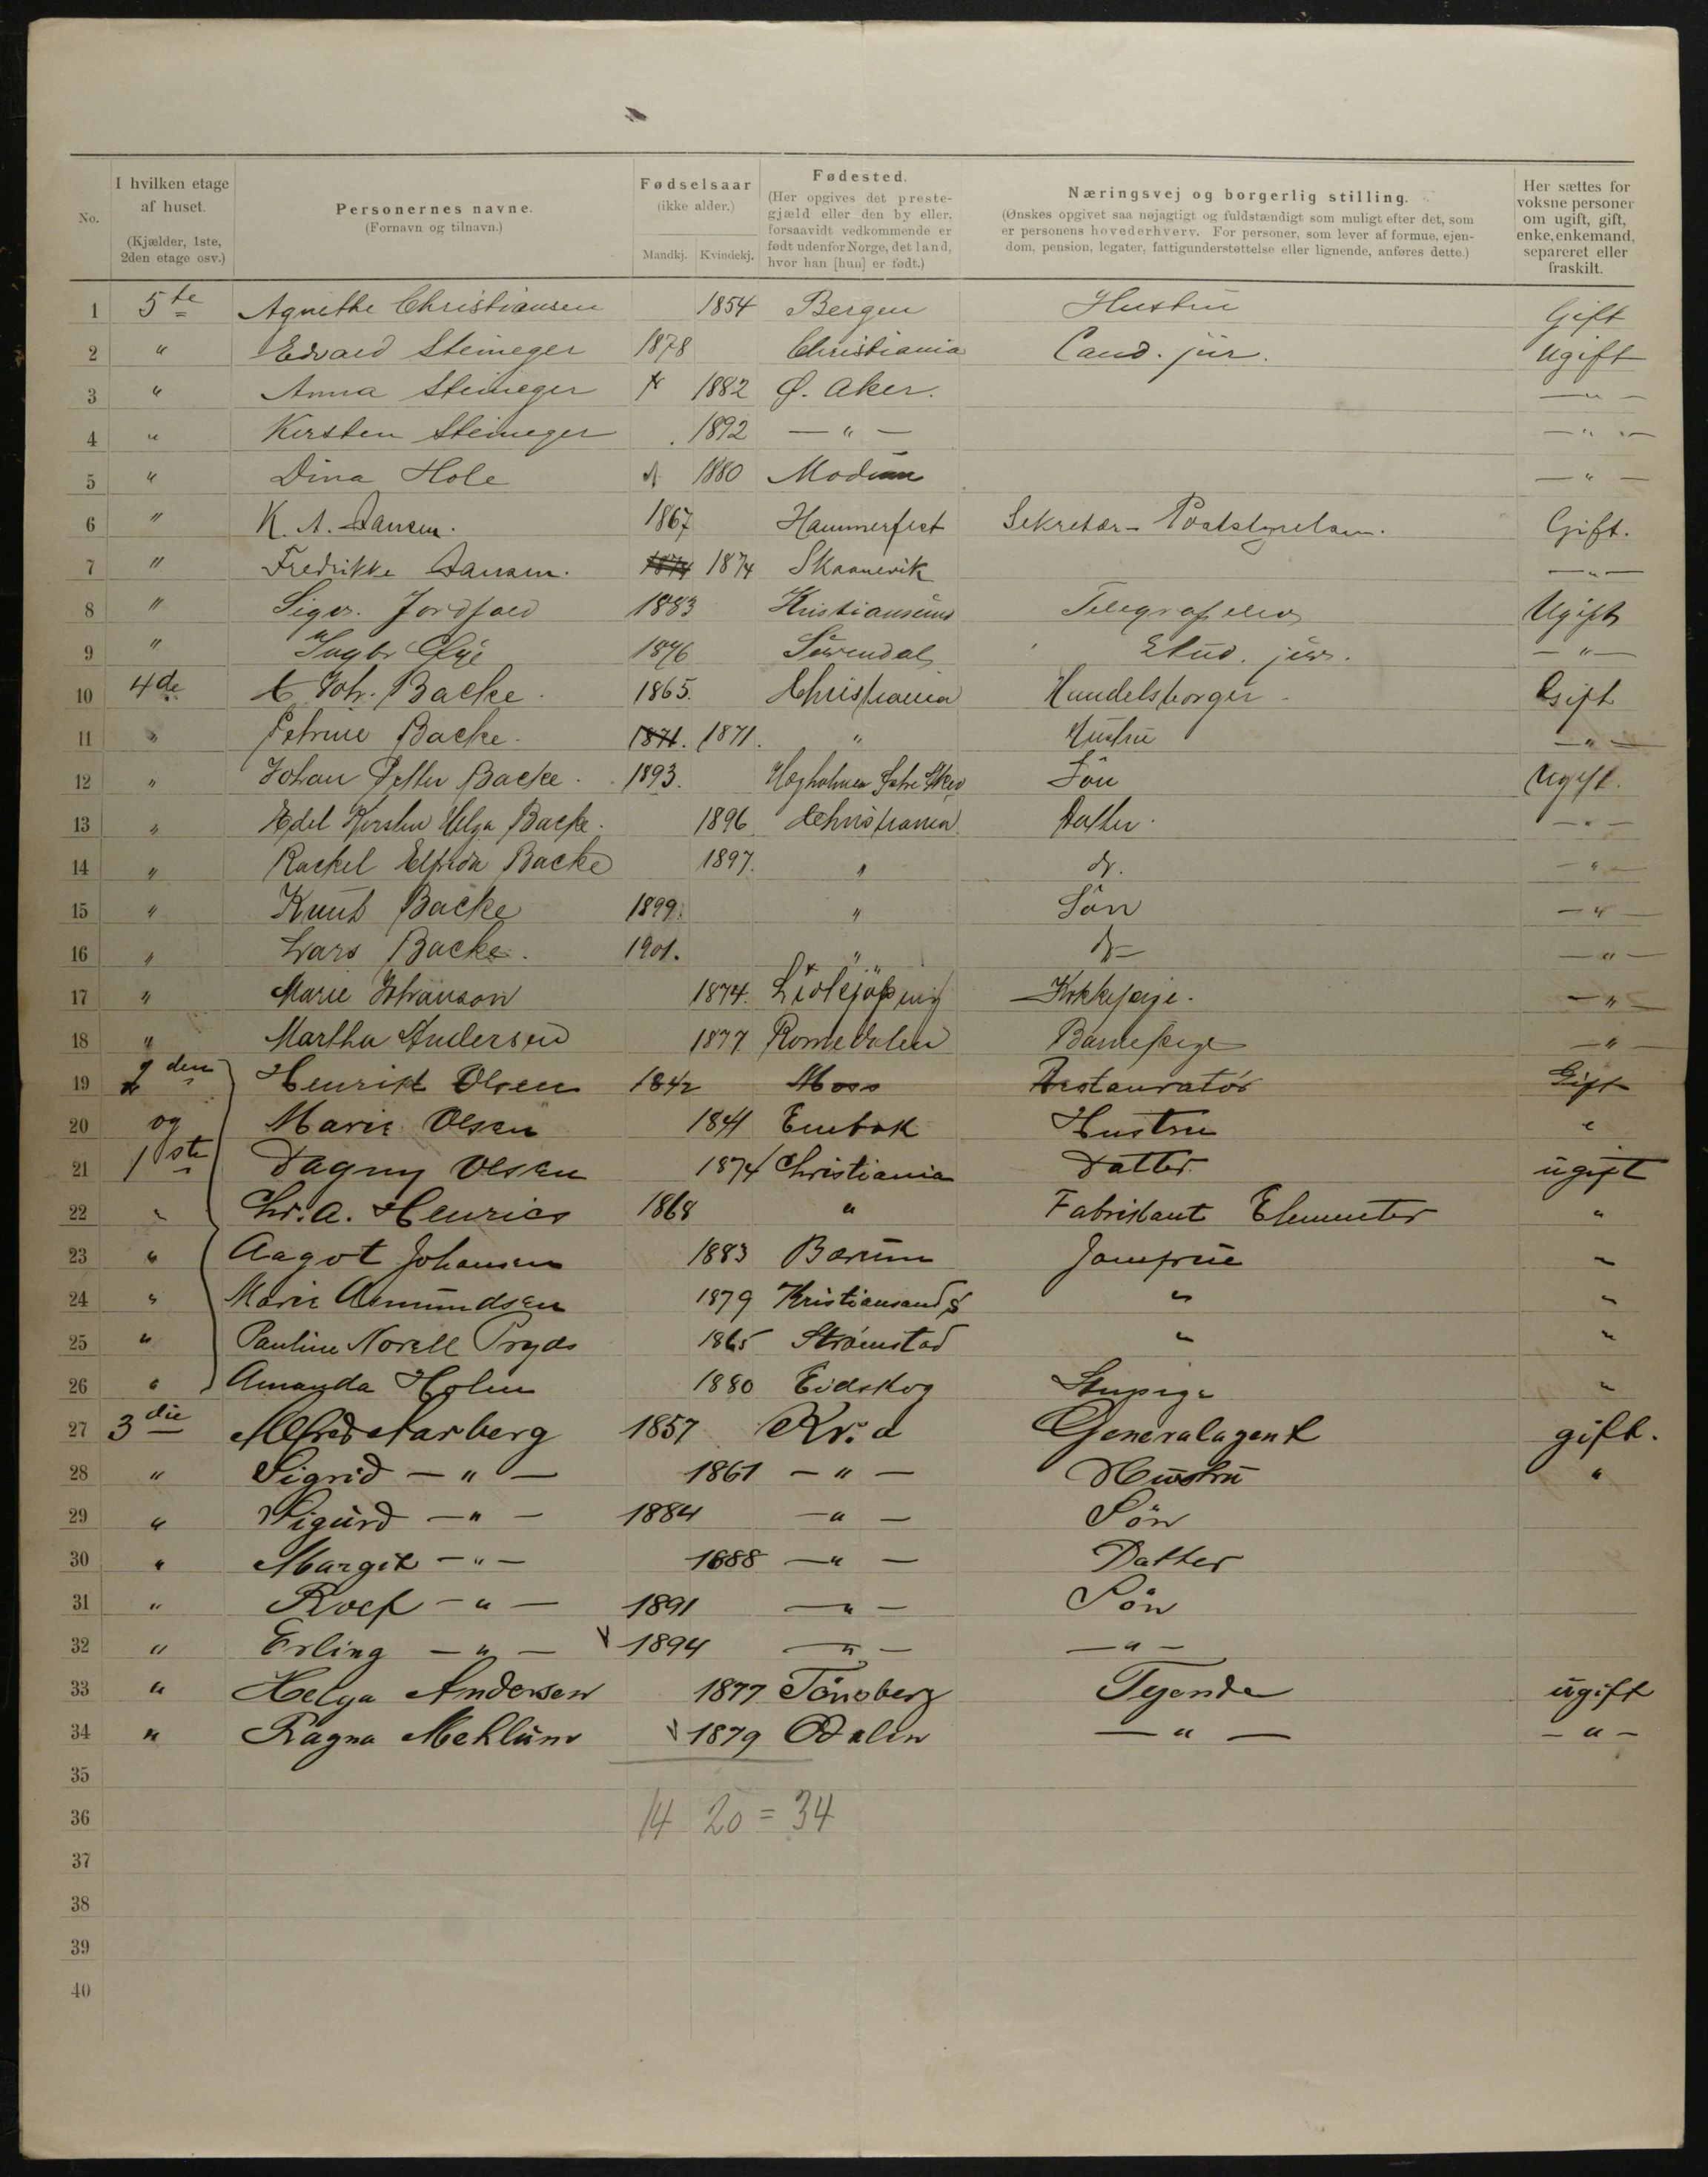 No.
I hvilken etage af huset. (Kjælder, 1ste, 2den etage osv.)
Personernes navne. (Fornavn og tilnavn.)
Fødselsaar (ikke alder.) Mandkj. Kvindekj.
Fødested. (Her opgives det prestegjæld eller den by eller, forsaavidt vedkommende er født udenfor Norge, det land, hvor han [hun] er født.)
Næringsvej og borgerlig stilling. (Ønskes opgivet saa nøjagtigt og fuldstændigt som muligt efter det, som er personens hovederhverv. For personer, som lever af formue, ejendom, pension, legater, fattigunderstøttelse eller lignende, anføres dette.)
Her sættes for voksne personer om ugift, gift, enke, enkemand, separeret eller fraskilt.
1 5te Agnethe Christiansen 1854 Bergen Hustru Gift
2 " Edvard Steineger 1878 Christiania Cand. jur. Ugift
3 " Anna Steineger 1882 Ø. Aker. — " —
4 " Kirsten Steineger 1892 — " — — " —
5 " Dina Hole 1880 Modum — " —
6 " K. A. Jansen. 1867 Hammerfest Sekretær - Poststyrelsen. Gift.
7 " Fredrikke Jansen. 1874 1874 Skaanevik — " —
8 " Sigv. Jordfald 1883 Kristianssund Telegrafelev Ugift
9 " Ingbr Øye 1876 Surendal Stud. jur. — " —
10 4de Joh. Backe. 1865. Christiania Handelsborger - Gift
11 " Petrine Backe. 1871. 1871. " Hustru — " —
12 " Johan Petter Backe. 1893. Søn Ugift.
13 " Edel Kirsten Helga Backe. 1896. Christiania Datter. — " —
14 " Rackel Elfrida Backe 1897. " do. — " —
15 " Knut Backe 1899. " Søn — " —
16 " Lars Backe. 1901. " do — " —
17 " Marie Johanson 1874. Lidkjöping Kokkepige. — " —
18 " Martha Andersen 1877 Romedalen Barnepige — " —
19 2den Henrik Olsen 1842 Moss Restauratør Gift
20 og Marie Olsen 1841 Enebak Hustru "
21 1ste Dagny Olsen 1874 Christiania Datter. ugift
22 " Chr. A. Henrics 1868 " Fabrikant Elementer "
23 " Aagot Johansen 1883 Bærum Jomfrue "
24 " Marie Amundsen 1879 Kristiansand S " "
25 " Pauline Norell Pryds 1865 Strømstad " "
26 " Amanda Holm 1880 Eidskog Stupige "
27 3die Alfred Aarberg 1857 Kr.a Generalagent gift.
28 " Sigrid — " — 1861 — " — Hustru "
29 " Sigurd — " — 1884 — " — Søn
30 " Margit — " — 1888 — " — Datter
31 " Rolf — " — 1891 — " — Søn
32 " Erling — " — 1894 — " — — " —
33 " Helga Andersen 1877 Tönsberg Tyende ugift
34 " Ragna Mehlum 1879 Odalen — " — — " —
35
36 14 20 = 34
37
38
39
40